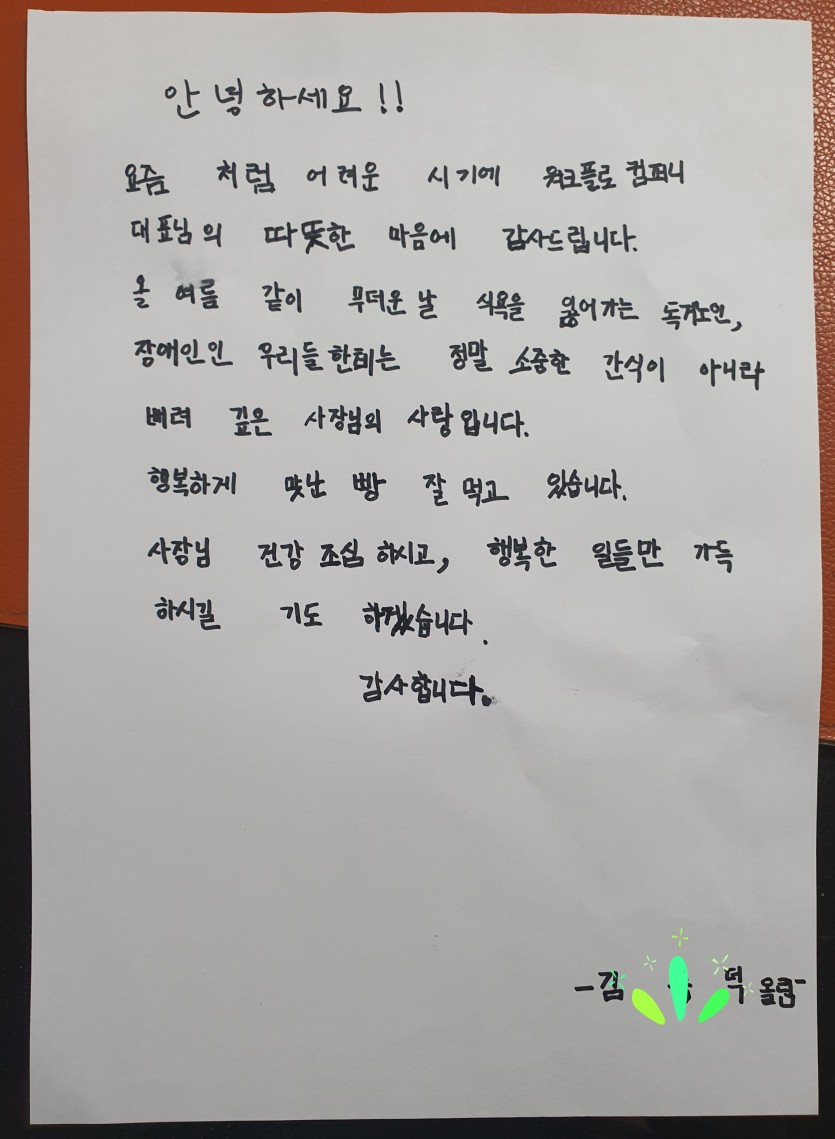 안녕하세요!!
요즘 처럼 어려운 시기에 워크플로 컴퍼니
대표님의 따뜻한 마음에 감사드립니다.
올 여름 같이 무더운 날 식욕을 잃어가는 독거노인,
장애인인 우리들한테는 정말 소중한 간식이 아니라
뼈려 깊은 사장님의 사랑입니다.
행복하게 맛난 빵 잘 먹고 있습니다.
사장님 건강 조심 하시고, 행복한 일들만 가득
하시길 기도 하겠습니다.
감사합니다.
-김 덕 올림-